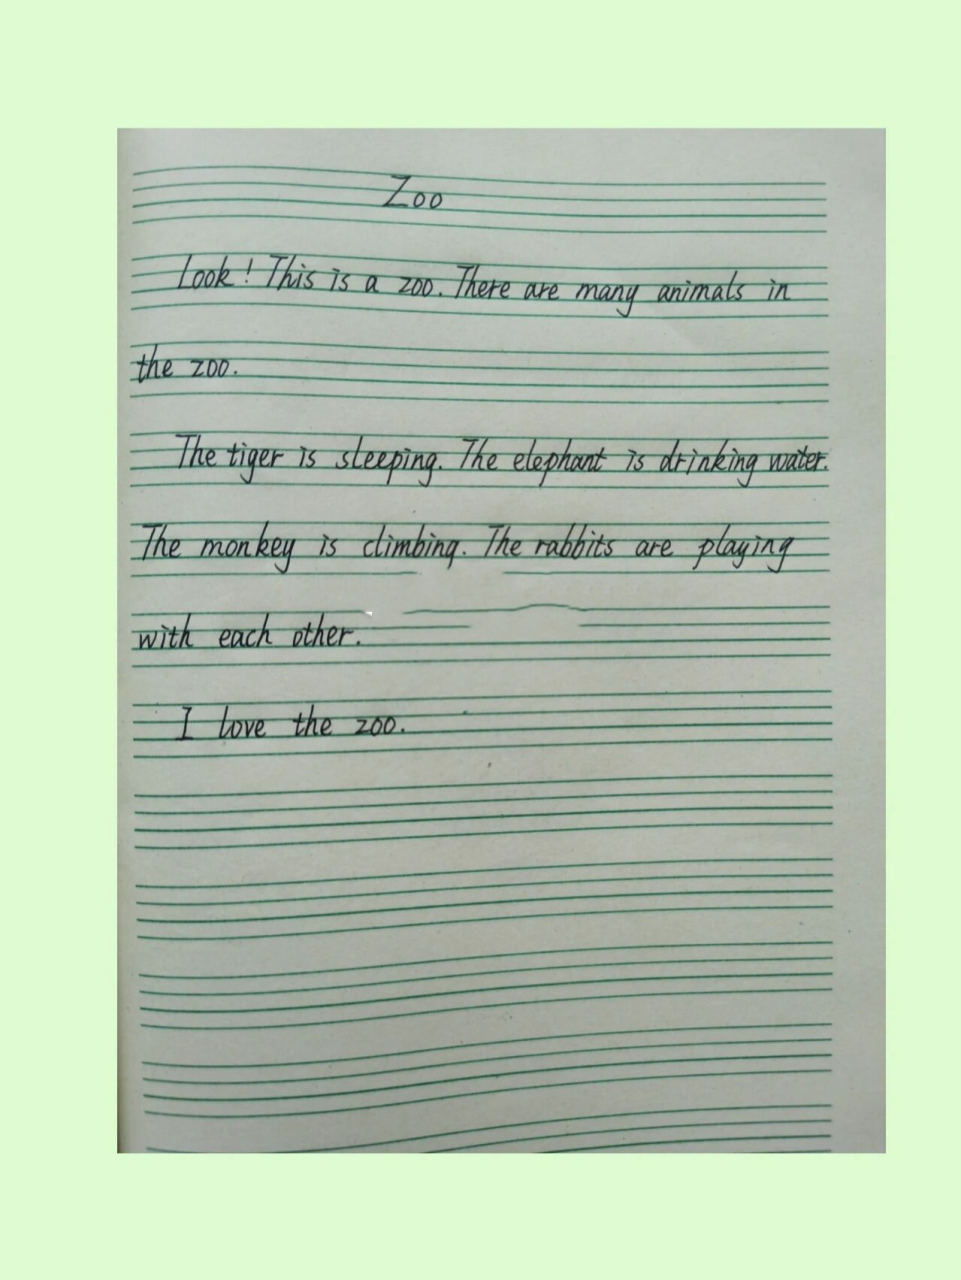 Zoo
Look! This is a zoo. There are many animals in
the zoo.
The tiger is sleeping. The elephant is drinking water.
The monkey is climbing. The rabbits are playing
with each other.
I love the zoo.